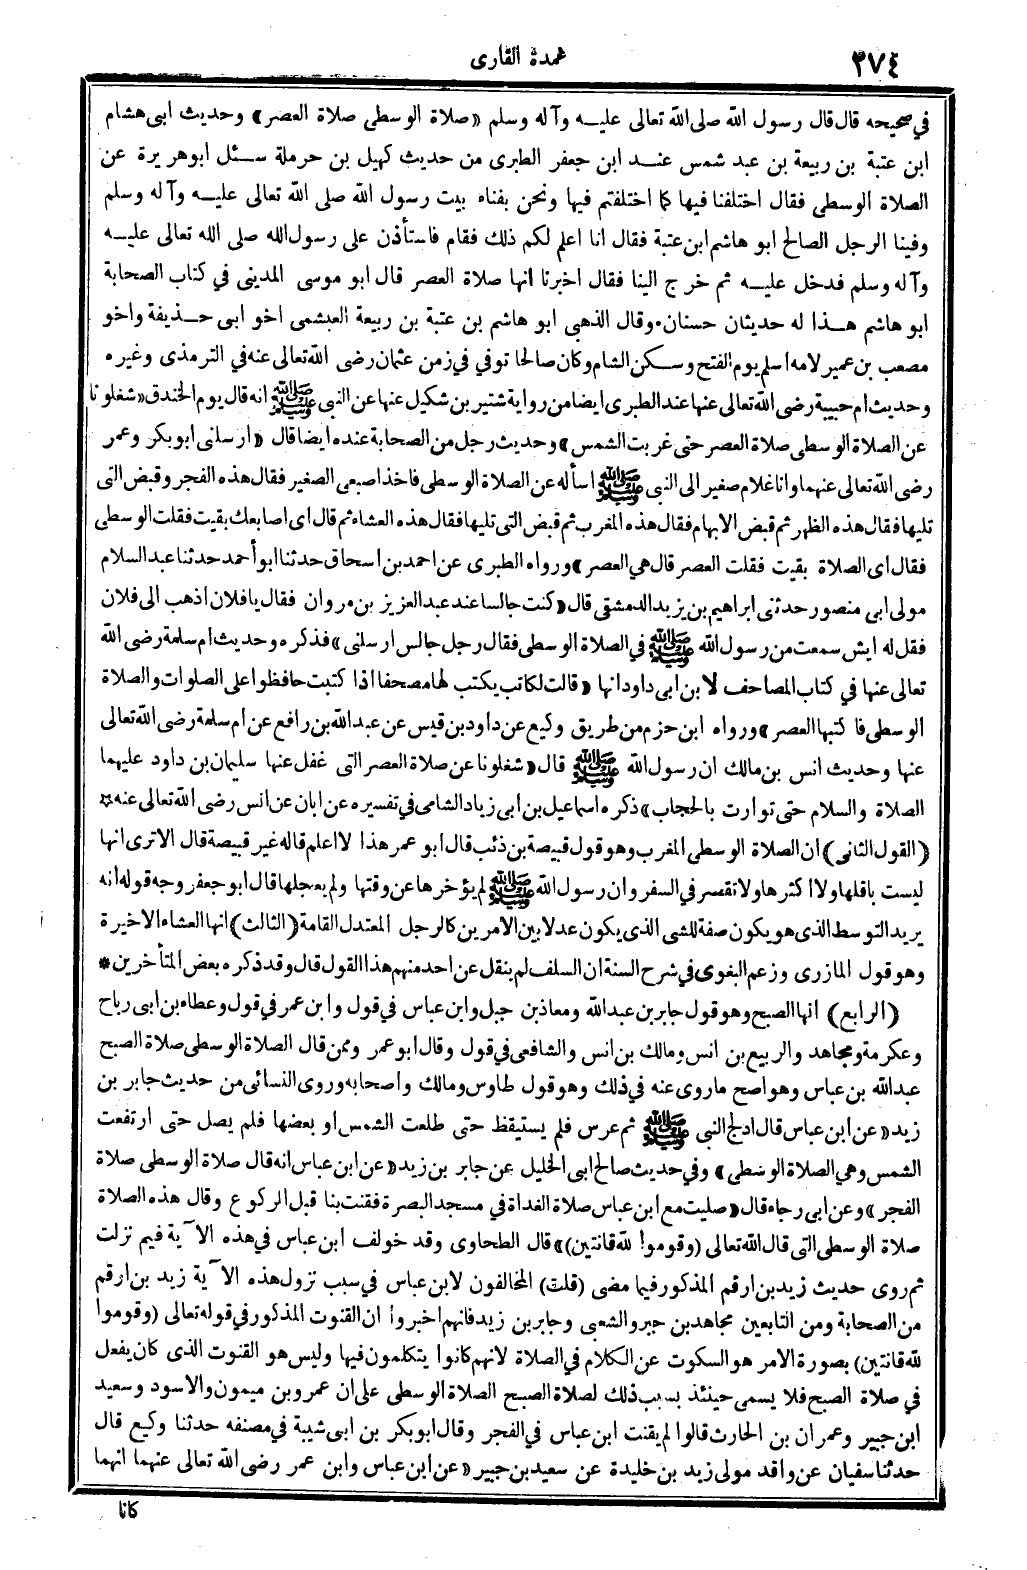 ٣٧٤
عمدة القارى
في صحيحه قال قال رسول الله صلى الله تعالى عليه وآله وسلم «صلاة الوسطى صلاة العصر» وحديث ابى هشام
ابن عتبة بن ربيعة بن عبد شمس عند ابن جعفر الطبرى من حديث كهيل بن حرملة سئل ابوهريرة عن
الصلاة الوسطى فقال اختلفنا فيها كما اختلفتم فيها ونحن بفناء بيت رسول الله صلى الله تعالى عليه وآله وسلم
وفينا الرجل الصالح ابو هاشم ابن عتبة فقال انا اعلم لكم ذلك فقام فاستأذن على رسول الله صلى الله تعالى عليه
وآله وسلم فدخل عليه ثم خرج الينا فقال اخبرنا انها صلاة العصر قال ابو موسى المدينى في كتاب الصحابة
ابو هاشم هذا له حديثان حسنان٠وقال الذهبي ابو هاشم بن عتبة بن ربيعة العبشمى اخو ابى حذيفة واخو
مصعب بن عمير لامه اسلم يوم الفتح وسكن الشام وكان صالحا توفي في زمن عثمان رضى الله تعالى عنه في الترمذى وغيره
وحديث ام حبيبة رضى الله تعالى عنها عند الطبرى ايضا من رواية شتير بن شكيل عنها عن النبى ﷺ انه قال يوم الخندق «شغلونا
عن الصلاة الوسطى صلاة العصر حتى غربت الشمس» وحديث رجل من الصحابة عنده ايضا قال «ارسلنى ابو بكر وعمر
رضى الله تعالى عنهما وانا غلام صغير الى النبى ﷺ اسأله عن الصلاة الوسطى فاخذ اصبعى الصغير فقال هذه الفجر وقبض التى
تليها فقال هذه الظهر ثم قبض الابهام فقال هذه المغرب ثم قبض التى تليها فقال هذه العشاء ثم قال اى اصابعك بقيت فقلت الوسطى
فقال اى الصلاة بقيت فقلت العصر قال هي العصر» ورواه الطبرى عن احمد بن اسحاق حدثنا ابو أحمد حدثنا عبد السلام
مولى ابى منصور حدثنى ابراهيم بن يزيد الدمشقى قال «كنت جالسا عند عبد العزيز بن مروان فقال يا فلان اذهب الى فلان
فقل له ايش سمعت من رسول الله ﷺ في الصلاة الوسطى فقال رجل جالس ارسلنى» فذكره وحديث ام سلمة رضى الله
تعالى عنها في كتاب المصاحف لابن ابى داود انها «قالت لكاتب يكتب لها مصحفا اذا كتبت حافظوا على الصلوات والصلاة
الوسطى فاكتبها العصر» ورواه ابن حزم من طريق وكيع عن داود بن قيس عن عبد الله بن رافع عن ام سلمة رضى الله تعالى
عنها وحديث انس بن مالك ان رسول الله ﷺ قال «شغلونا عن صلاة العصر التى غفل عنها سليمان بن داود عليهما
الصلاة والسلام حتى توارت بالحجاب» ذكره اسماعيل بن ابى زياد الشامى في تفسيره عن ابان عن انس رضى الله تعالى عنه ☆
(القول الثانى) ان الصلاة الوسطى المغرب وهو قول قبيصة بن ذئب قال ابو عمر هذا لا اعلم قاله غير قبيصة قال الا ترى انها
ليست باقلها ولا اكثرها ولا تقصر في السفر وان رسول الله ﷺ لم يؤخرها عن وقتها ولم يعجلها قال ابو جعفر وجه قوله انه
يريد التوسط الذى هو يكون صفة للشى الذى يكون عدلا بين الامرين كالرجل المعتدل القامة (الثالث) انها العشاء الاخيرة
وهو قول المازرى وزعم البغوى في شرح السنة ان السلف لم ينقل عن احد منهم هذا القول قال وقد ذكره بعض المتأخرين *
(الرابع) انها الصبح وهو قول جابر بن عبد الله ومعاذ بن جبل وابن عباس في قول وابن عمر في قول وعطاء بن ابى رباح
وعكرمة ومجاهد والربيع بن انس ومالك بن انس والشافعى في قول وقال ابو عمر وممن قال الصلاة الوسطى صلاة الصبح
عبد الله بن عباس وهو اصح ما روى عنه في ذلك وهو قول طاوس ومالك واصحابه وروى النسائى من حديث جابر بن
زيد «عن ابن عباس قال ادلج النبى ﷺ ثم عرس فلم يستيقظ حتى طلعت الشمس او بعضها فلم يصل حتى ارتفعت
الشمس وهي الصلاة الوسطى» وفي حديث صالح ابى الخليل عن جابر بن زيد «عن ابن عباس انه قال صلاة الوسطى صلاة
الفجر» وعن ابى رجاء قال «صليت مع ابن عباس صلاة الغداة في مسجد البصرة فقنت بنا قبل الركوع وقال هذه الصلاة
صلاة الوسطى التى قال الله تعالى (وقوموا لله قانتين)» قال الطحاوى وقد خولف ابن عباس في هذه الآية فيم نزلت
ثم روى حديث زيد بن ارقم المذكور فيما مضى (قلت) المخالفون لابن عباس في سبب نزول هذه الآية زيد بن ارقم
من الصحابة ومن التابعين مجاهد بن جبر والشعبى وجابر بن زيد فانهم اخبروا ان القنوت المذكور في قوله تعالى (وقوموا
لله قانتين) بصورة الامر هو السكوت عن الكلام في الصلاة لانهم كانوا يتكلمون فيها وليس هو القنوت الذى كان يفعل
في صلاة الصبح فلا يسمى حينئذ بسبب ذلك لصلاة الصبح الصلاة الوسطى على ان عمرو بن ميمون والاسود وسعيد
ابن جبير وعمران بن الحارث قالوا لم يقنت ابن عباس في الفجر وقال ابو بكر بن ابى شيبة في مصنفه حدثنا وكيع قال
حدثنا سفيان عن واقد مولى زيد بن خليدة عن سعيد بن جبير «عن ابن عباس وابن عمر رضى الله تعالى عنهما انهما
كانا